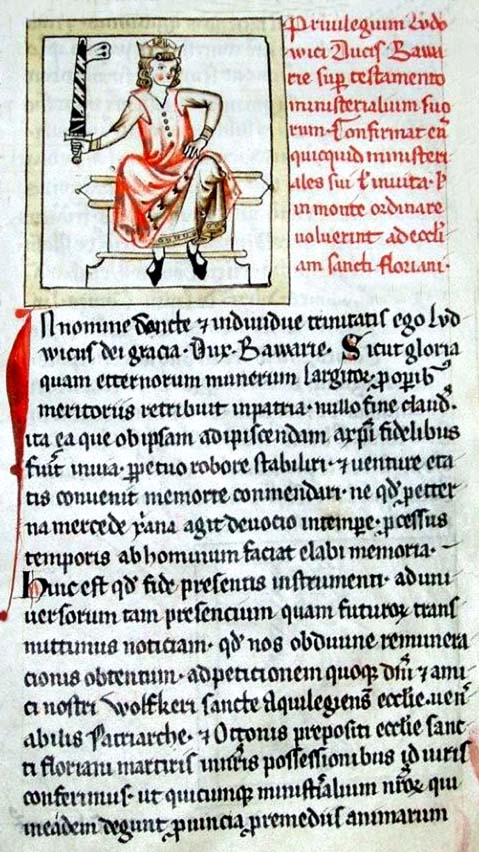 Priuilegium Ludo
wici Ducis Bawa
rie sup testamento
ministerialium suo
rum. Confirmat eñ
quicquid ministeri
ales sui ł inuita ł
in morte ordinare
uoluerint ad eccłi
am sancti floriani.
In nomine sancte ⁊ indiuidue trinitatis ego Lvd
wicus dei gracia. Dux. Bawarie. Sicut gloria
quam eternorum munerum largitor, ꝓ opib
meritoriis retribuit in patria. nullo fine claud.
ita ea que ob ipsam adipiscendam a xp̄i fidelibus
fiūt in uia. ꝑpetuo robore stabiliri. ⁊ uenture eta
tis conuenit memorie conmendari. ne qđ ꝑ eter
na mercede xp̄iana agit deuocio in tempe. ꝓcessus
temporis ab hominum faciat elabi memoria.
Hinc est qđ fide presentis instrumenti. ad uni
uersorum tam presencium quam futuroꝝ trans
mittimus noticiam. qđ nos ob diuine remunera
cionis obtentum. ad peticionem quoqꝫ dn̄i ⁊ ami
ci nostri Wolfkeri sancte Aquilegienš ecclie. uen
abilis Patriarche. ⁊ Ottonis prepositi ecclie sanc
ti floriani martiris in nr̄is possessionibus id iuris
conferimus. ut quicumqꝫ ministralium nr̄oꝝ qui
in eadem degunt ꝓuincia ꝓ remediis animarum